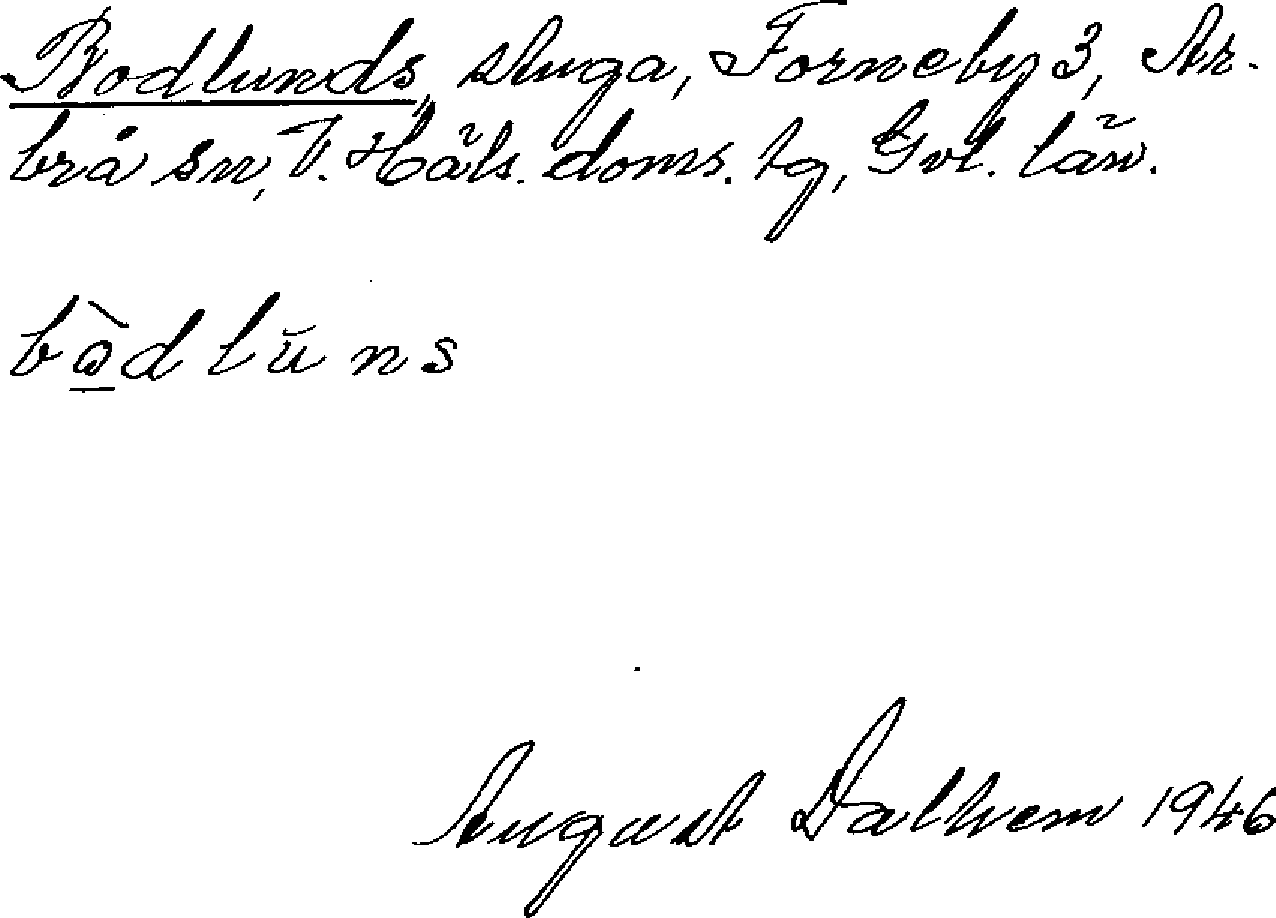 Bodlunds, stuga, Forneby 3, Ar-
brå sn, V. Häls. doms. tg, Gvl. län.
bò̱dlŭns
August Dalhem 1946